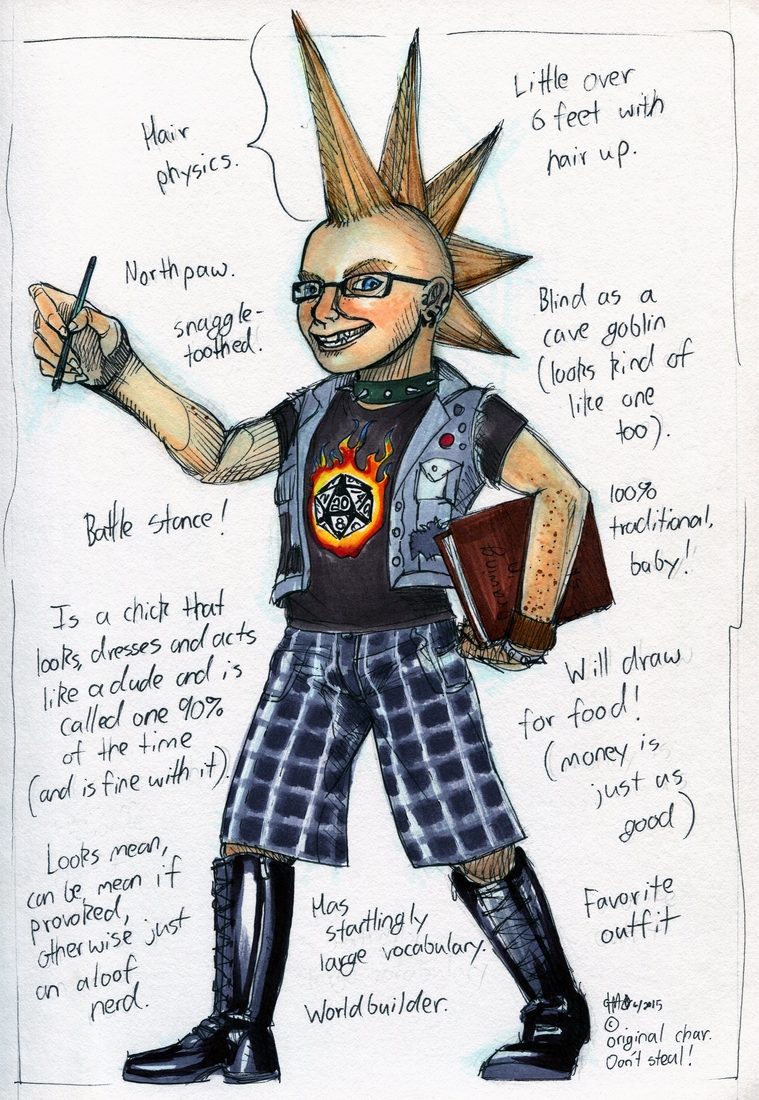 Hair
physics.
Little over
6 feet with
hair up.
Northpaw.
snaggle-
toothed.
Blind as a
cave goblin
(looks kind of
like one
too).
20
8
Battle stance!
100%
traditional,
baby!
Is a chick that
looks, dresses and acts
like a dude and is
called one 90%
of the time
(and is fine with it).
Will draw
for food!
(money is
just as
good)
Looks mean,
can be mean if
provoked,
otherwise just
an aloof
nerd.
Has
startlingly
large vocabulary.
Worldbuilder.
Favorite
outfit
6/2015
©
original char.
Don't steal!